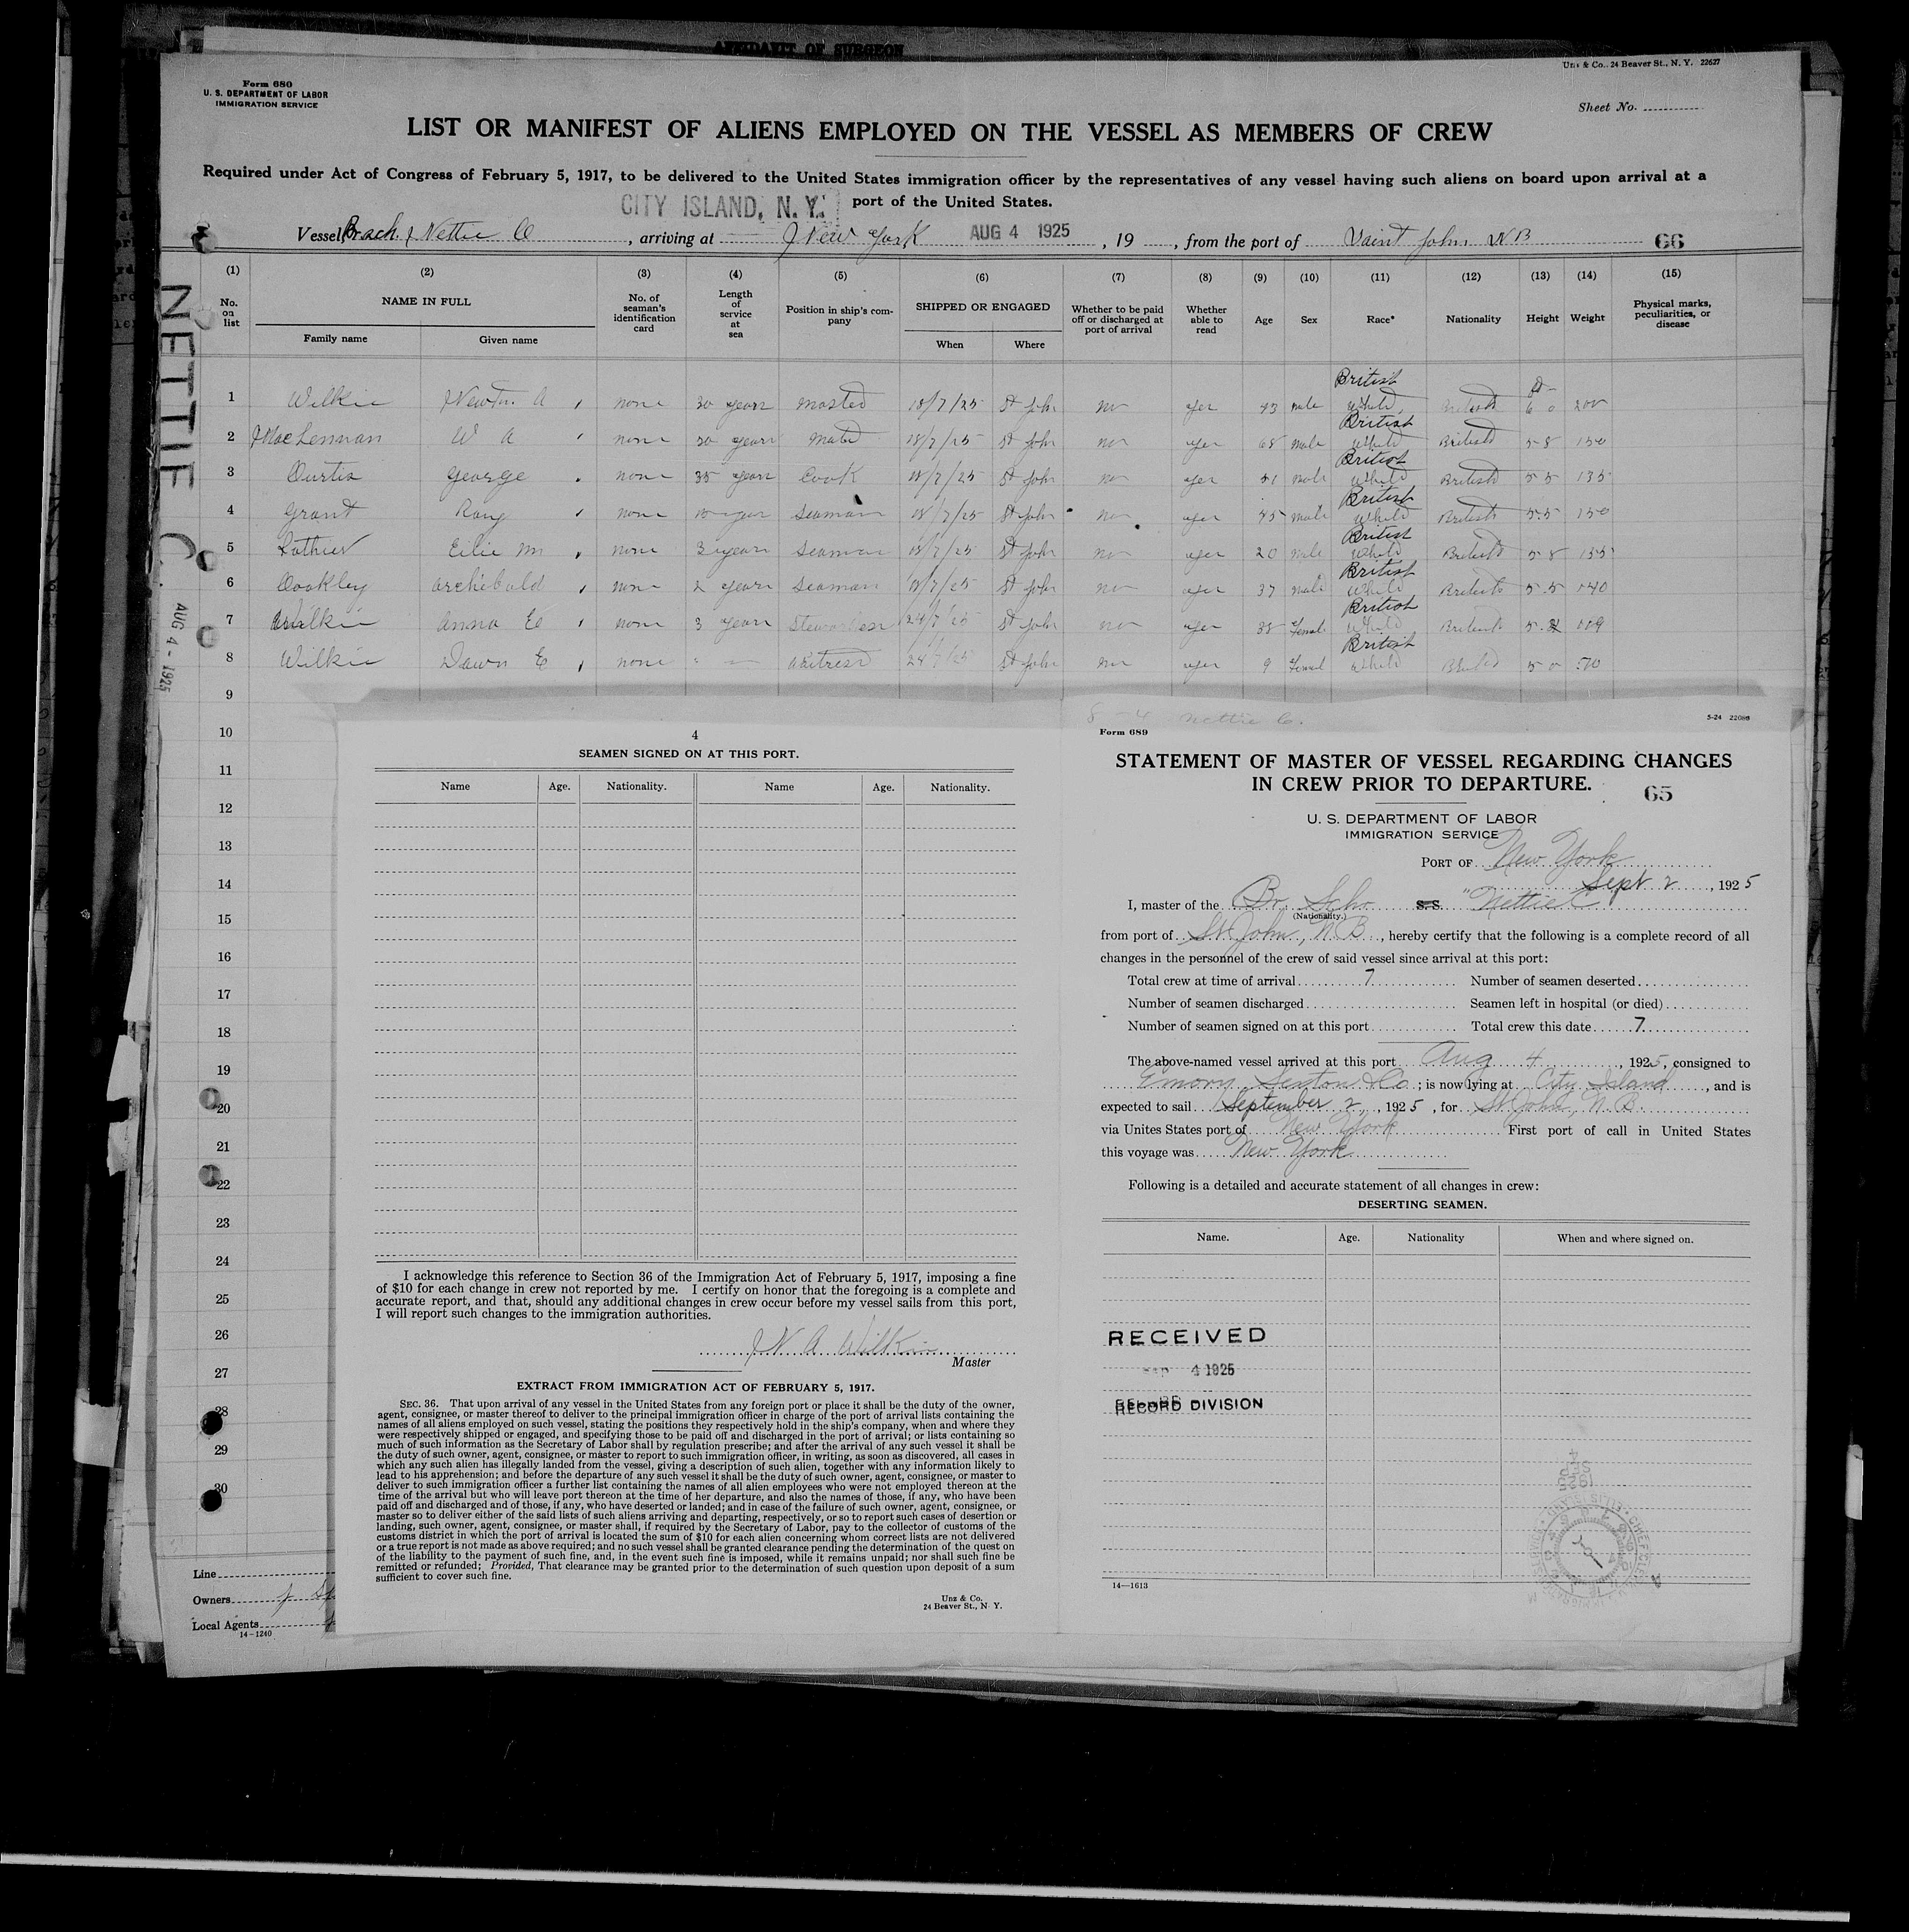 AFFIDAVIT OF SURGEON
Form 680
U. S. DEPARTMENT OF LABOR
IMMIGRATION SERVICE
Unz & Co., 24 Beaver St., N. Y. 22627
Sheet No.
LIST OR MANIFEST OF ALIENS EMPLOYED ON THE VESSEL AS MEMBERS OF CREW
Required under Act of Congress of February 5, 1917, to be delivered to the United States immigration officer by the representatives of any vessel having such aliens on board upon arrival at a
port of the United States.
CITY ISLAND, N. Y.
Vessel Nettie C, arriving at New York AUG 4 1925, 19 , from the port of Saint John NB 66
NETTIE C.
AUG 4 - 1925
(1) (2) (3) (4) (5) (6) (7) (8) (9) (10) (11) (12) (13) (14) (15)
No. on list NAME IN FULL Family name Given name No. of seaman's identification card Length of service at sea Position in ship's company SHIPPED OR ENGAGED When Where Whether to be paid off or discharged at port of arrival Whether able to read Age Sex Race* Nationality Height Weight Physical marks, peculiarities, or disease
1 Wilkie Newton A none 30 years master 18/7/25 St John no yes 43 male British white British 6 0 200
2 MacLennan W A none 50 years mate 18/7/25 St John no yes 68 male British white British 5-8 150
3 Curtis George none 35 years Cook 18/7/25 St John no yes 51 male British white British 5 5 135
4 Grant Roy none seaman 18/7/25 St John no yes 45 male British white British 5.5 150
5 none 3 years seaman 18/7/25 St John no yes 20 male British white British 5-8 155
6 Coakley Archibald none 2 years seaman 18/7/25 St John no yes 37 male British white British 5.5 140
7 Wilkie Anna E none 3 years Stewardess 24/7/25 St John no yes 38 Female British white British 109
8 Wilkie Dawn E none waitress 24/7/25 St John no yes 9 Female British white British 5 0 70
9
10
11
12
13
14
15
16
17
18
19
20
21
22
23
24
25
26
27
28
29
30
Line
Owners
Local Agents
14-1240
4
SEAMEN SIGNED ON AT THIS PORT.
Name Age. Nationality. Name Age. Nationality.
I acknowledge this reference to Section 36 of the Immigration Act of February 5, 1917, imposing a fine
of $10 for each change in crew not reported by me. I certify on honor that the foregoing is a complete and
accurate report, and that, should any additional changes in crew occur before my vessel sails from this port,
I will report such changes to the immigration authorities.
N A Wilkie
Master
EXTRACT FROM IMMIGRATION ACT OF FEBRUARY 5, 1917.
SEC. 36. That upon arrival of any vessel in the United States from any foreign port or place it shall be the duty of the owner,
agent, consignee, or master thereof to deliver to the principal immigration officer in charge of the port of arrival lists containing the
names of all aliens employed on such vessel, stating the positions they respectively hold in the ship's company, when and where they
were respectively shipped or engaged, and specifying those to be paid off and discharged in the port of arrival; or lists containing so
much of such information as the Secretary of Labor shall by regulation prescribe; and after the arrival of any such vessel it shall be
the duty of such owner, agent, consignee, or master to report to such immigration officer, in writing, as soon as discovered, all cases in
which any such alien has illegally landed from the vessel, giving a description of such alien, together with any information likely to
lead to his apprehension; and before the departure of any such vessel it shall be the duty of such owner, agent, consignee, or master to
deliver to such immigration officer a further list containing the names of all alien employees who were not employed thereon at the
time of the arrival but who will leave port thereon at the time of her departure, and also the names of those, if any, who have been
paid off and discharged and of those, if any, who have deserted or landed; and in case of the failure of such owner, agent, consignee, or
master so to deliver either of the said lists of such aliens arriving and departing, respectively, or so to report such cases of desertion or
landing, such owner, agent, consignee, or master shall, if required by the Secretary of Labor, pay to the collector of customs of the
customs district in which the port of arrival is located the sum of $10 for each alien concerning whom correct lists are not delivered
or a true report is not made as above required; and no such vessel shall be granted clearance pending the determination of the quest on
of the liability to the payment of such fine, and, in the event such fine is imposed, while it remains unpaid; nor shall such fine be
remitted or refunded; Provided, That clearance may be granted prior to the determination of such question upon deposit of a sum
sufficient to cover such fine.
Unz & Co.
24 Beaver St., N. Y.
8 - 4 Nettie C.
5-24 22088
Form 689
STATEMENT OF MASTER OF VESSEL REGARDING CHANGES
IN CREW PRIOR TO DEPARTURE.
65
U. S. DEPARTMENT OF LABOR
IMMIGRATION SERVICE
PORT OF New York
Sept 2, 1925
I, master of the Br. Schr S.S. "Nettie C
(Nationality.)
from port of St John, N.B., hereby certify that the following is a complete record of all
changes in the personnel of the crew of said vessel since arrival at this port:
Total crew at time of arrival 7 Number of seamen deserted
Number of seamen discharged Seamen left in hospital (or died)
Number of seamen signed on at this port Total crew this date 7
The above-named vessel arrived at this port Aug 4, 1925, consigned to
Emory Sexton & Co; is now lying at City Island, and is
expected to sail September 2, 1925, for St John, N.B.
via Unites States port of New York First port of call in United States
this voyage was New York
Following is a detailed and accurate statement of all changes in crew:
DESERTING SEAMEN.
Name. Age. Nationality When and where signed on.
RECEIVED
SEP 4 1925
RECORD DIVISION
14—1613
SEP 4
1925